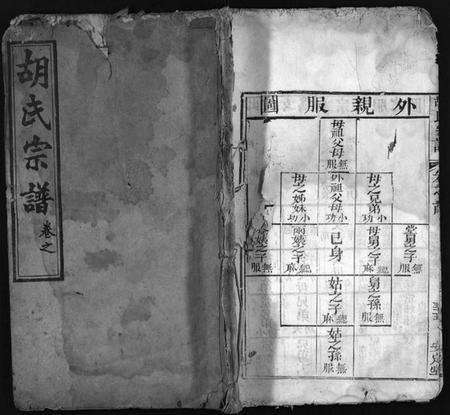 胡氏宗譜
卷之
外親服圖
母祖父母
無服
母之兄弟
小功
外祖父母
小功
母之姊妹
小功
堂舅之子
無服
母舅之子
緦麻
己身
兩姨之子
緦麻
無服
舅之孫
無服
姑之子
緦麻
姑之孫
無服